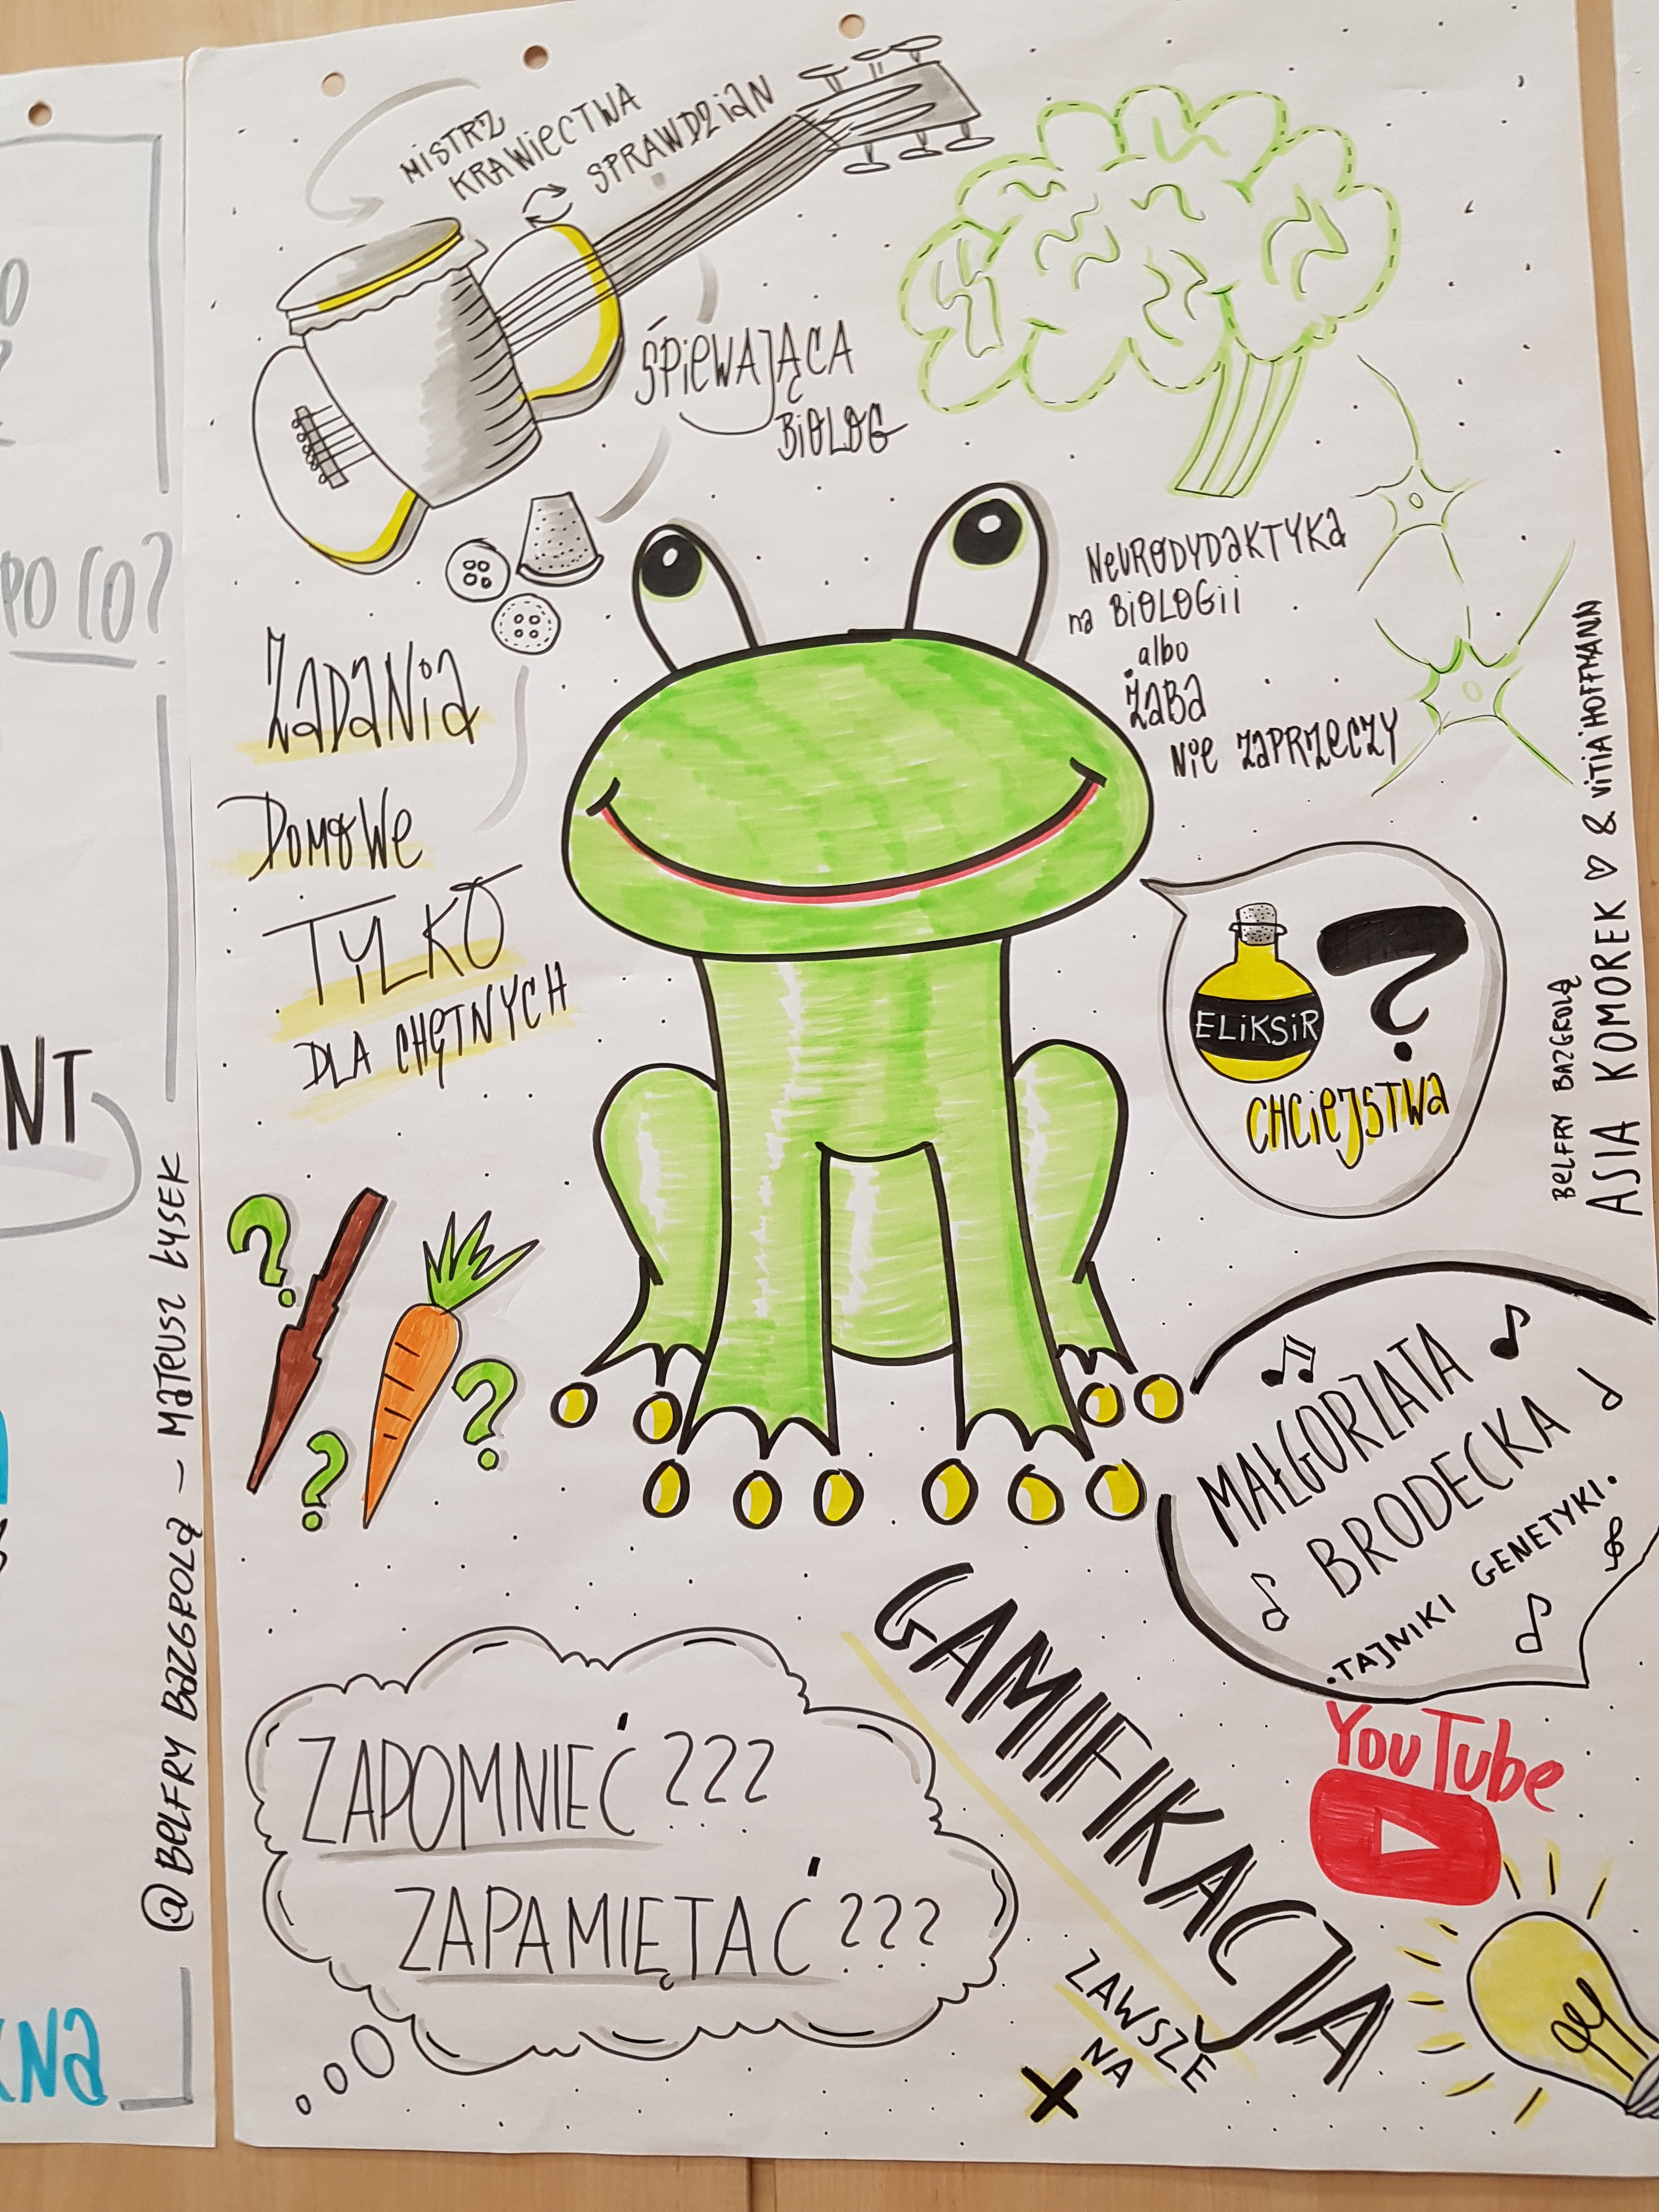 MISTRZ
KRAWIECTWA
SPRAWDZIAN
ŚPIEWAJĄCA
BIOLOG
ZADANIA
DOMOWE
TYLKO
DLA CHĘTNYCH
NEURODYDAKTYKA
na BIOLOGII
albo
ŻABA
NIE ZAPRZECZY
ELIKSIR
?
CHCIEJSTWA
BELFRY BAZGROLĄ
ASIA KOMOREK ♡ & VITIA HOFFMANN
?
?
?
MAŁGORZATA
BRODECKA
.TAJNIKI GENETYKI.
ZAPOMNIEĆ???
ZAPAMIĘTAĆ???
GAMIFIKACJA
ZAWSZE
NA
+
YouTube
@BELFRY BAZGROLĄ – MATEUSZ ŁYSEK
PO CO?
NT
NA